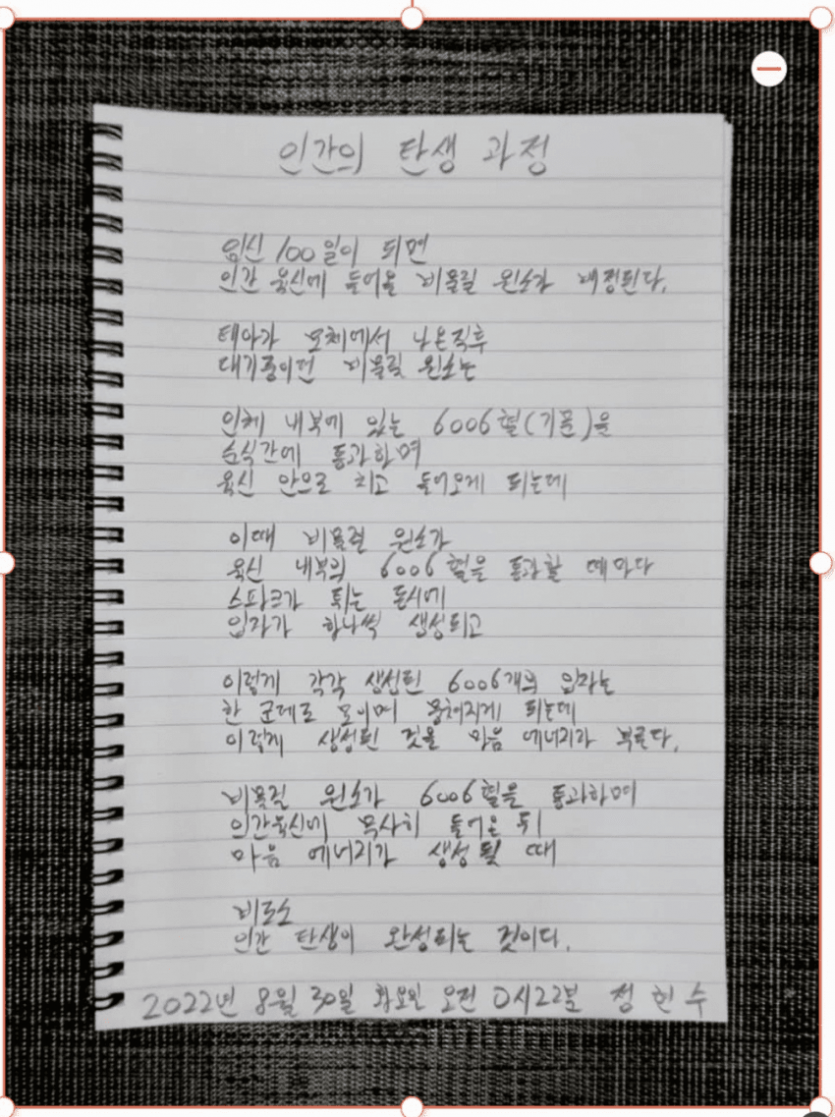 인간의 탄생 과정
임신 100일이 되면
인간 육신에 들어올 비물질 원소가 배정된다.
태아가 모체에서 나온직후
대기중이던 비물질 원소는
인체 내부에 있는 6006혈(기문)을
순식간에 통과하며
육신 안으로 치고 들어오게 되는데
이때 비물질 원소가
육신 내부의 6006혈을 통과할 때마다
스파크가 튀는 동시에
입자가 하나씩 생성되고
이렇게 각각 생성된 6006개의 입자는
한 군데로 모이며 뭉쳐지게 되는데
이렇게 생성된 것을 마음 에너지라 부른다.
비물질 원소가 6006혈을 통과하며
인간육신에 무사히 들어온 뒤
마음 에너지가 생성 될 때
비로소
인간 탄생이 완성되는 것이다.
2022년 8월 30일 화요일 오전 0시22분 정 현 수